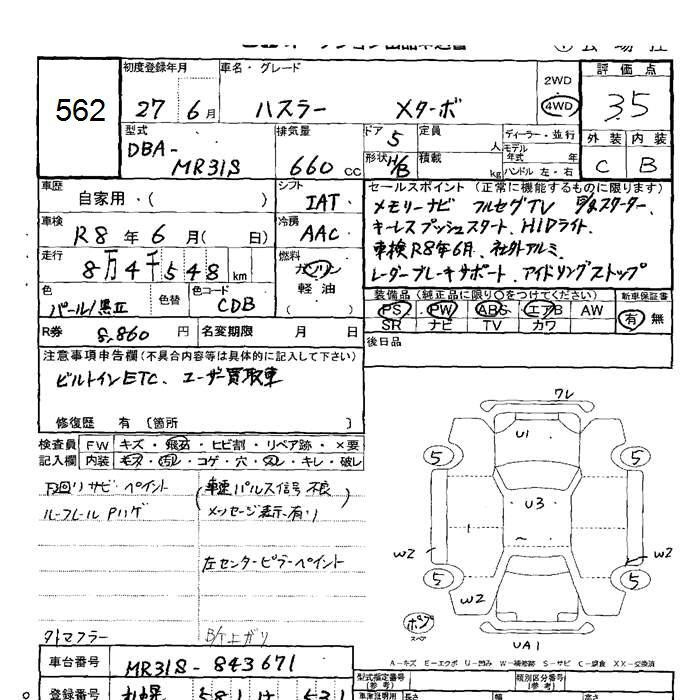 562
初度登録年月 車名・グレード 2WD 評価点
27 6月 ハスラー Xターボ 4WD 3.5
型式 排気量 ドア 5 定員 人 ディーラー・並行 外装 内装
DBA-MR31S 660 CC 形状 H/B 積載 kg モデル年式 年 ハンドル 左・右 C B
車歴 自家用・( ) シフト IAT
セールスポイント (正常に機能するものに限ります)
メモリーナビ フルセグTV
キーレスプッシュスタート、HIDライト、
車検R8年6月、社外アルミ、
レーダーブレーキサポート、アイドリングストップ
車検 R8年 6月( 日) 冷房 AAC
走行 8万4千548 km 燃料 ガソリン 軽油 ( )
色 パール/黒 色替 色コード CDB
装備品(純正品に限り○をつけてください) 新車保証書
PS PW ABS エアB AW 有 無
SR ナビ TV カワ
R券 8,860 円 名変期限 月 日
後日品
注意事項申告欄(不具合内容等は具体的に記入して下さい)
ビルトインETC、ユーザー買取車
修復歴 有 〔箇所 〕
検査員 FW キズ・飛石・ヒビ割・リペア跡・×要
記入欄 内装 モス・汚レ・コゲ・穴・スレ・キレ・破レ
下回りサビペイント (車速パルス信号不良
ルーフレールPハゲ メッセージ表示有り)
左センターピラーペイント
外マフラー B/T上ガリ
ワレ
U1
5 5
U3
W2 W2
5 5
W2
UA1
スペア
A-キズ E-エクボ U-凹み W-補修跡 S-サビ C-腐食 XX-交換済
車台番号 MR31S-843671
型式指定番号(参考) 類別区分番号(参考)
登録番号 札幌 581
長さ 幅 高さ